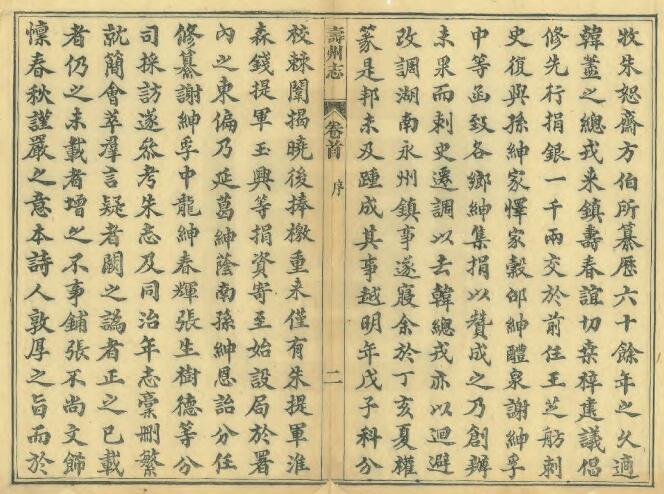 牧朱恕齋方伯所纂歷六十餘年之久適
韓藎之總戎來鎮壽春誼切桑梓建議倡
修先行捐銀一千兩交於前任王芝舫刺
史復與孫紳家懌家穀邰紳醴泉謝紳孚
中等函致各鄉紳集捐以贊成之乃創辦
未果而刺史遷調以去韓總戎亦以迴避
改調湖南永州鎮事遂寢余於丁亥夏權
篆是邦未及踵成其事越明年戊子科分
壽州志 卷首 序 二
校棘闈揭曉後捧檄重來僅有朱提軍淮
森錢提軍玉興等捐資寄至始設局於署
內之東偏乃延葛紳蔭南孫紳恩詒分任
修纂謝紳孚中龍紳春輝張生樹德等分
司採訪遂叅考朱志及同治年志稾刪繁
就簡會萃羣言疑者闕之譌者正之已載
者仍之未載者增之不事鋪張不尚文飾
懍春秋謹嚴之意本詩人敦厚之旨而於